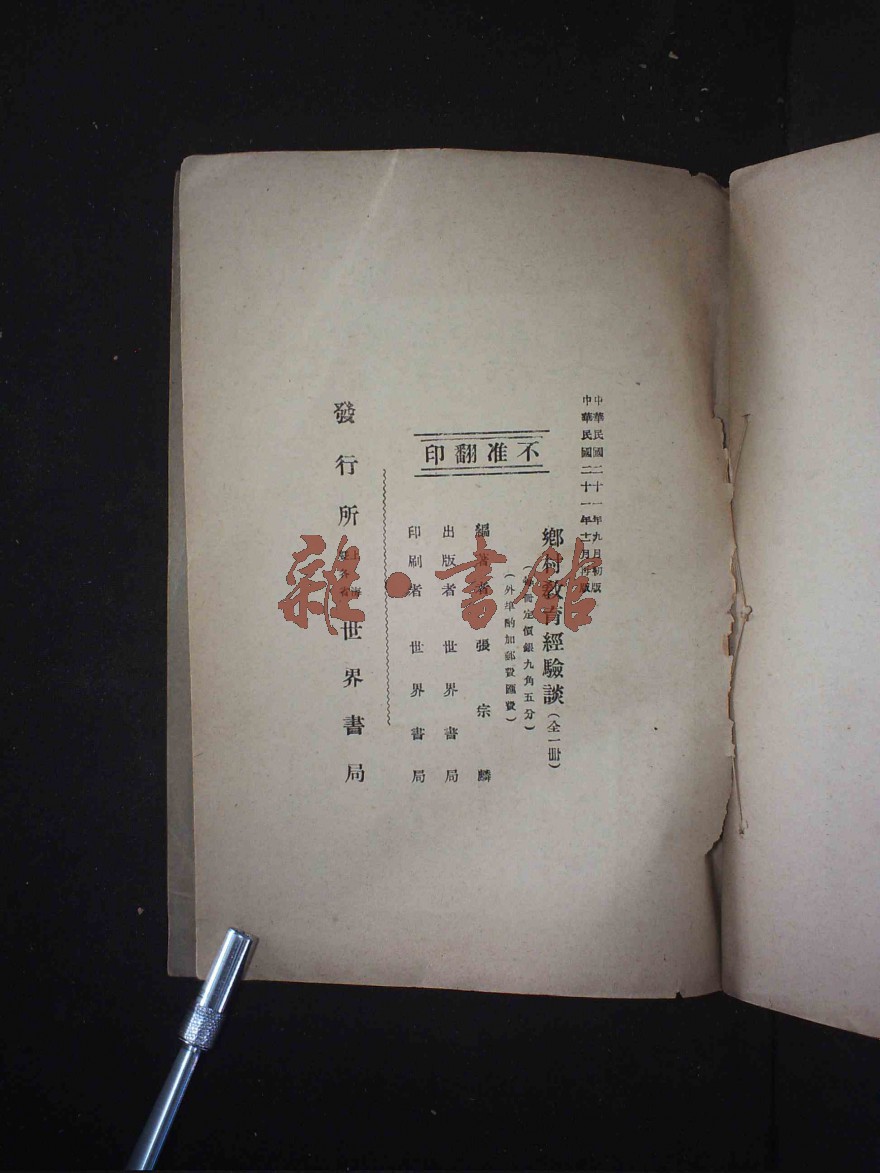 中華民國二十一年九月初版
中華民國二十一年十一月再版
鄉村教育經驗談(全一冊)
(每冊定價銀九角五分)
(外埠酌加郵費匯費)
不准翻印
編著者 張宗麟
出版者 世界書局
印刷者 世界書局
發行所 上海暨各省 世界書局
雜·書館